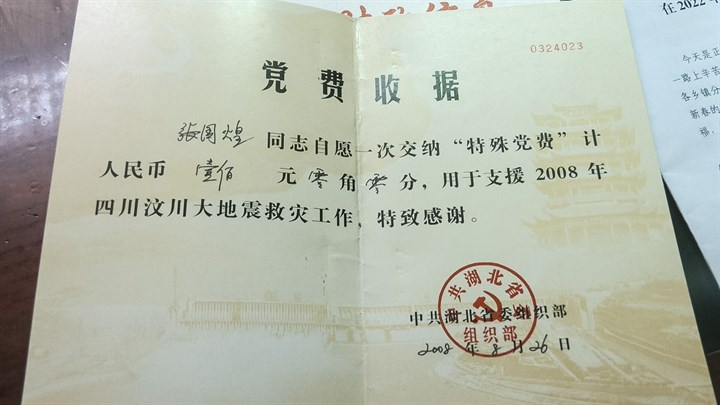 0324023
党费收据
张国煌 同志自愿一次交纳“特殊党费”计
人民币 壹佰 元零角零分，用于支援2008年
四川汶川大地震救灾工作，特致感谢。
中共湖北省委组织部
2008年8月26日
中共湖北省委
组织部
在2022
今天是正
一路上辛苦
各乡镇分
新春的
福，